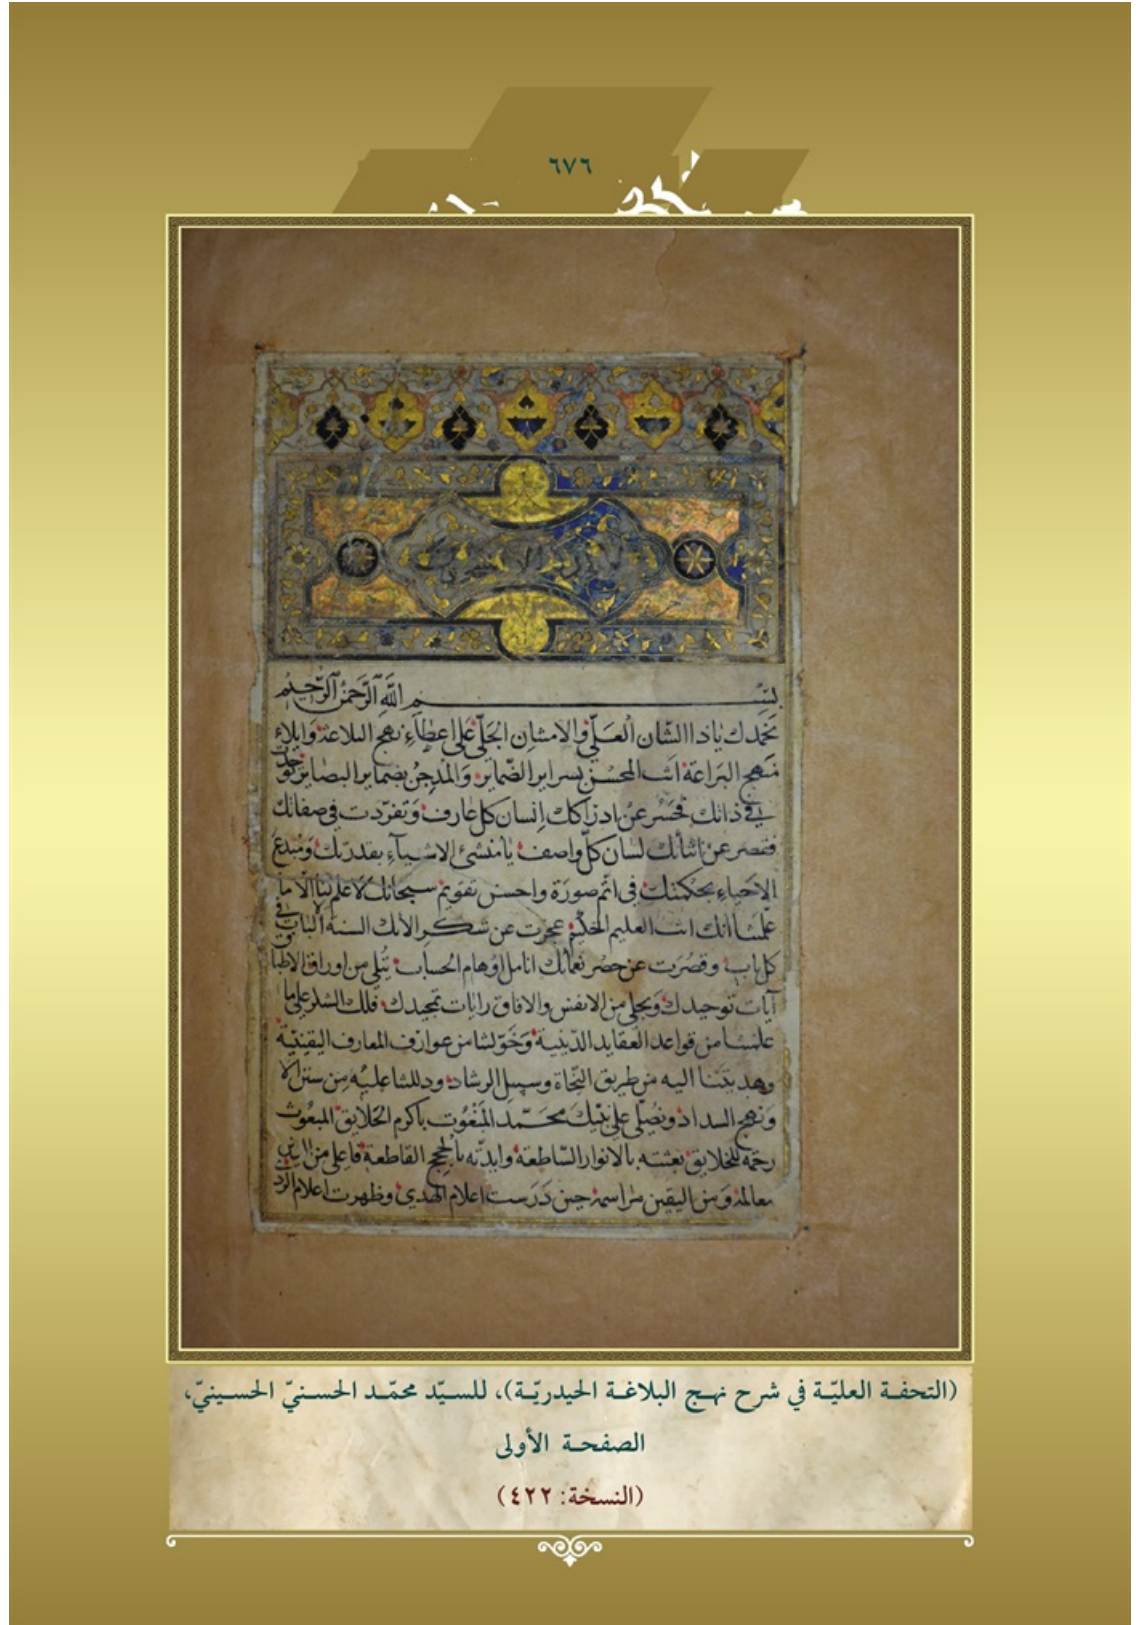 ٦٧٦
بسم الله الرحمن الرحيم
نحمدك ياذا الشان العلي والامتنان الجلي على اعطاء نهج البلاغة وايلاء
منهج البراعة انت المحسن بسراير الضماير والمدجن بضماير البصاير توحدت
في ذاتك فحسر عن ادراكك إنسان كل عارف وتفردت في صفاتك
فقصر عن اثنائك لسان كل واصف يا منشئ الاشياء بقدرتك ومبدع
الاحياء بحكمتك في اتم صورة واحسن تقويم سبحانك لا علم لنا الا ما
علمتنا انك انت العليم الحكيم عجزت عن شكر الائك السنة الباب في
كل باب وقصرت عن حصر نعمائك انامل اوهام الحساب تتلى من اوراق الاطباق
آيات توحيدك وتجلى من الانفس والافاق رايات تمجيدك فلك الشكر على ما
علمتنا من قواعد العقايد الدينية وخولتنا من عوارف المعارف اليقينية
وهديتنا اليه من طريق النجاة وسبيل الرشاد ودللتنا عليه من سنن الا
ونهج السداد ونصلي على نبيك محمد المنعوت باكرم الخلايق المبعوث
رحمة للخلايق بعثته بالانوار الساطعة وايدته بالحجج القاطعة فاعلى من الدين
معالمه ومن اليقين مراسمه حين درست اعلام الهدى وظهرت اعلام الردى
(التحفة العليّة في شرح نهج البلاغة الحيدريّة)، للسيّد محمّد الحسنيّ الحسينيّ،
الصفحة الأولى
(النسخة: ٤٢٢)